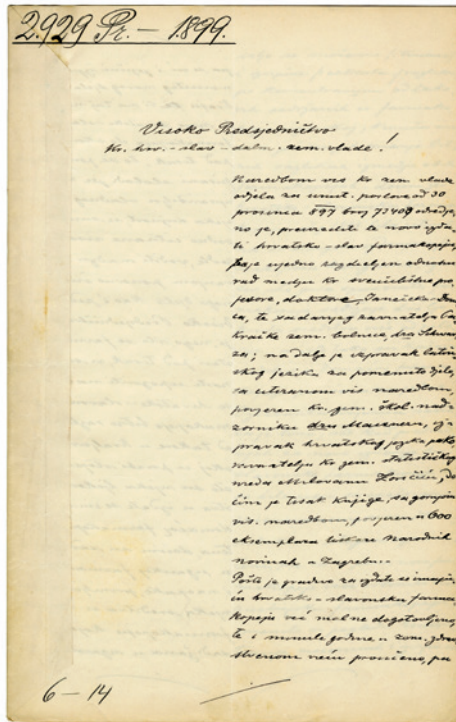 2929 Pr. – 1899.
Visoko Predsjedničtvo
Kr. hrv. – slav – dalm. zem. vlade!
Naredbom vis kr zem vlade
odjela za unut. poslove od 30
prosinca 897 broj 73409 odredje,
no je, preurediti te novo izda,
ti hrvatsko – slav farmakopeju,
te je ujedno razdieljen odnosni
rad medju kr sveučilištne pro,
fesore, doktore, Janečeka
te zadarnjeg
zem. bolnice, dra Schwar
za; na dalje je izpravak latin,
skog jezika za pomenuto djelo,
sa citiranom vis naredbom,
povjeren kr. zem. škol. nad,
zorniku dru Maixneru, iz,
pravak hrvatskog jezika pako,
ravnatelju kr zem. statističkog
ureda Milovanu Zoričiću, do
čim je tisak knjige, sa gornjom
vis. naredbom, povjeren u 600
eksemplara tiskari Narodnih
novinah u Zagrebu.–
Pošto je gradivo za izdati se imaju,
ću hrvatsko – slavonsku farma,
kopeju već malne dogotovljeno,
te i minule godine u zem. zdrav
stvenom vieću proučeno, pa
6 – 14